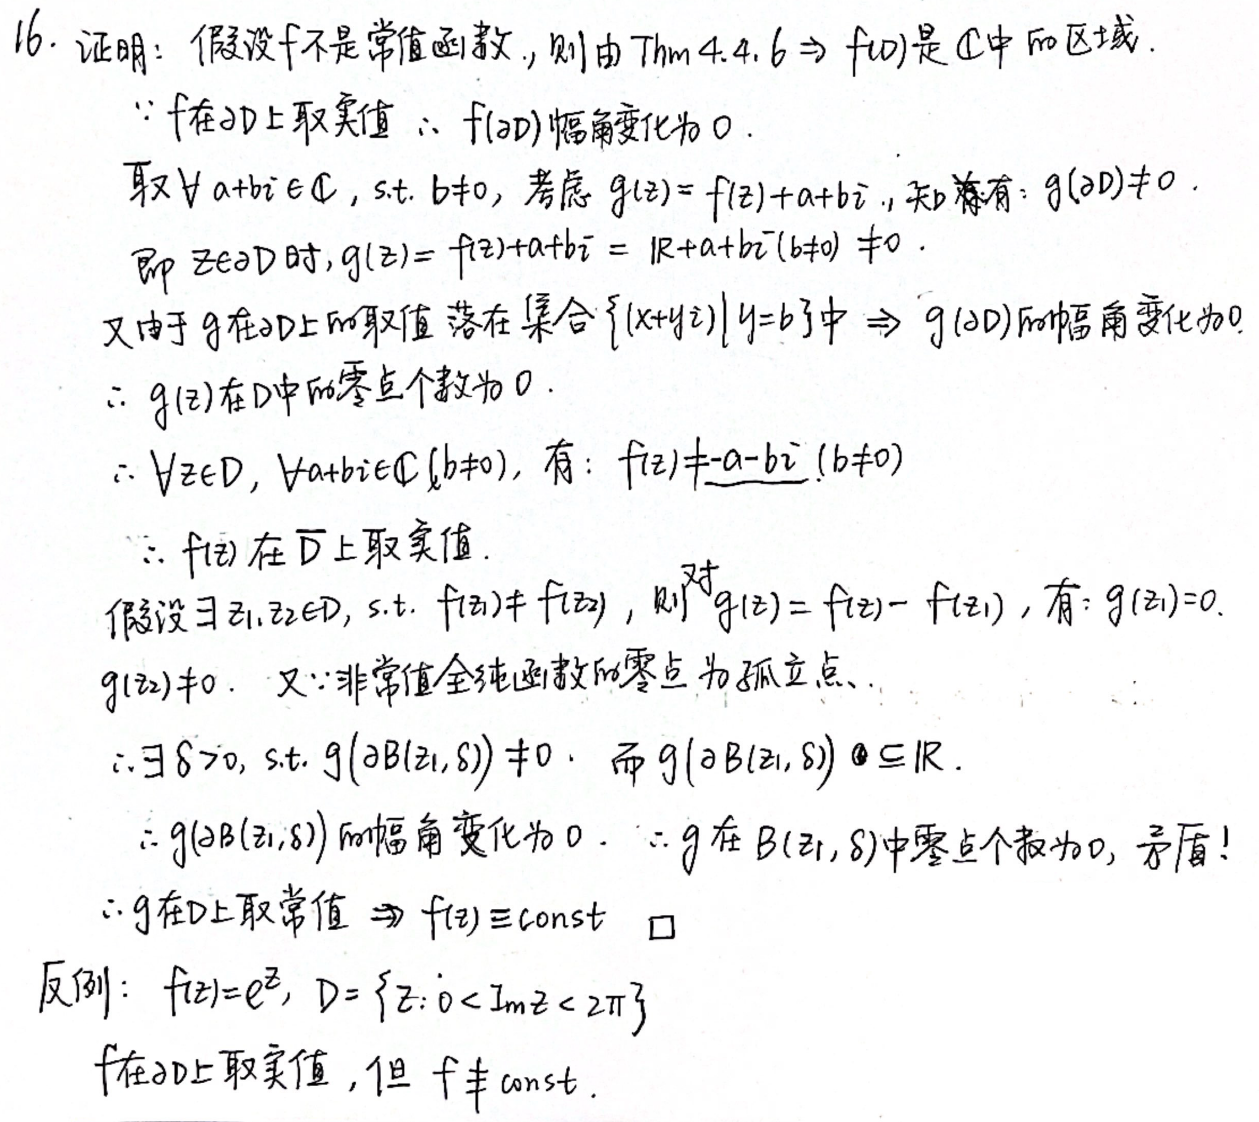 16. 证明: 假设f不是常值函数., 则由 Thm 4.4.6 ⇒ f(D)是 ℂ中的区域.
∵ f在∂D上取实值 ∴ f(∂D)幅角变化为 0.
取∀ a+bi∈ℂ, s.t. b≠0, 考虑 g(z)= f(z)+a+bi., 知 有: g(∂D)≠0.
即 z∈∂D时, g(z)= f(z)+a+bi = ℝ+a+bi (b≠0) ≠0.
又由于 g在∂D上的取值 落在 集合 {(x+yi)|y=b}中 ⇒ g(∂D)的幅角变化为0.
∴ g(z)在D中的零点个数为 0.
∴ ∀z∈D, ∀a+bi∈ℂ(b≠0), 有: f(z)≠-a-bi (b≠0)
∴ f(z) 在 D̅ 上取实值.
假设∃z₁,z₂∈D, s.t. f(z₁)≠f(z₂), 则对g(z)= f(z)- f(z₁), 有: g(z₁)=0.
g(z₂)≠0. 又∵非常值全纯函数的零点为孤立点.
∴∃δ>0, s.t. g(∂B(z₁,δ))≠0. 而 g(∂B(z₁,δ)) ⊆ℝ.
∴g(∂B(z₁,δ))的幅角变化为 0. ∴g在 B(z₁,δ)中零点个数为0, 矛盾!
∴g在D上取常值 ⇒ f(z)≡const □
反例: f(z)=e^z, D={z: 0<Imz<2π}
f在∂D上取实值, 但 f≢const.